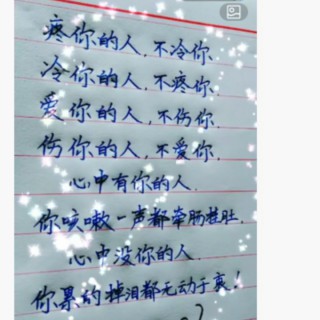 疼你的人，不冷你.
冷你的人，不疼你.
爱你的人，不伤你.
伤你的人，不爱你.
心中有你的人.
你咳嗽一声都牵肠挂肚.
心中没你的人.
你累的掉泪都无动于衷！